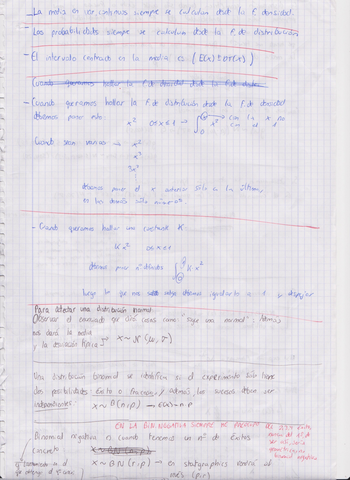 - La media en var. continuas siempre se calculan desde la F. densidad.
- Las probabilidades siempre se calcula desde la F. de distribución
- El intervalo centrado en la media es (E(x) ± Dt(x))
- Cuando queramos hallar la F. de distribución desde la F. de densidad
debemos poner esto x² 0≤x≤1 →
Cuando sean varias → x²
x³
3x²
debemos poner el x anterior sólo en la última,
en las demás sólo números.
- Cuando queramos hallar una constante K:
Kx² 0≤x≤1
debemos poner nº límites
Luego lo que nos salga debemos igualarlo a 1 y despejar
Para detectar una distribución normal:
Observar el enunciado que dirá cosas como "sigue una normal". Además,
nos dará la media
y la desviación típica x ~ N(μ, σ)
Una distribución binomial se identifica si el experimento sólo tiene
dos posibilidades. Éxito o fracaso, y además, los sucesos deben ser
independientes. x ~ B(n,p) → E(x) = n·p
EN LA BIN. NEGATIVA SIEMPRE SE
Binomial negativa es cuando tenemos un nº de éxitos
concreto
x ~ BN(r,p) → en statgraphics vendrá al
revés (p,r)